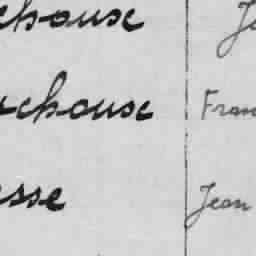 chouse Je
rchouse Fran
sse Jean